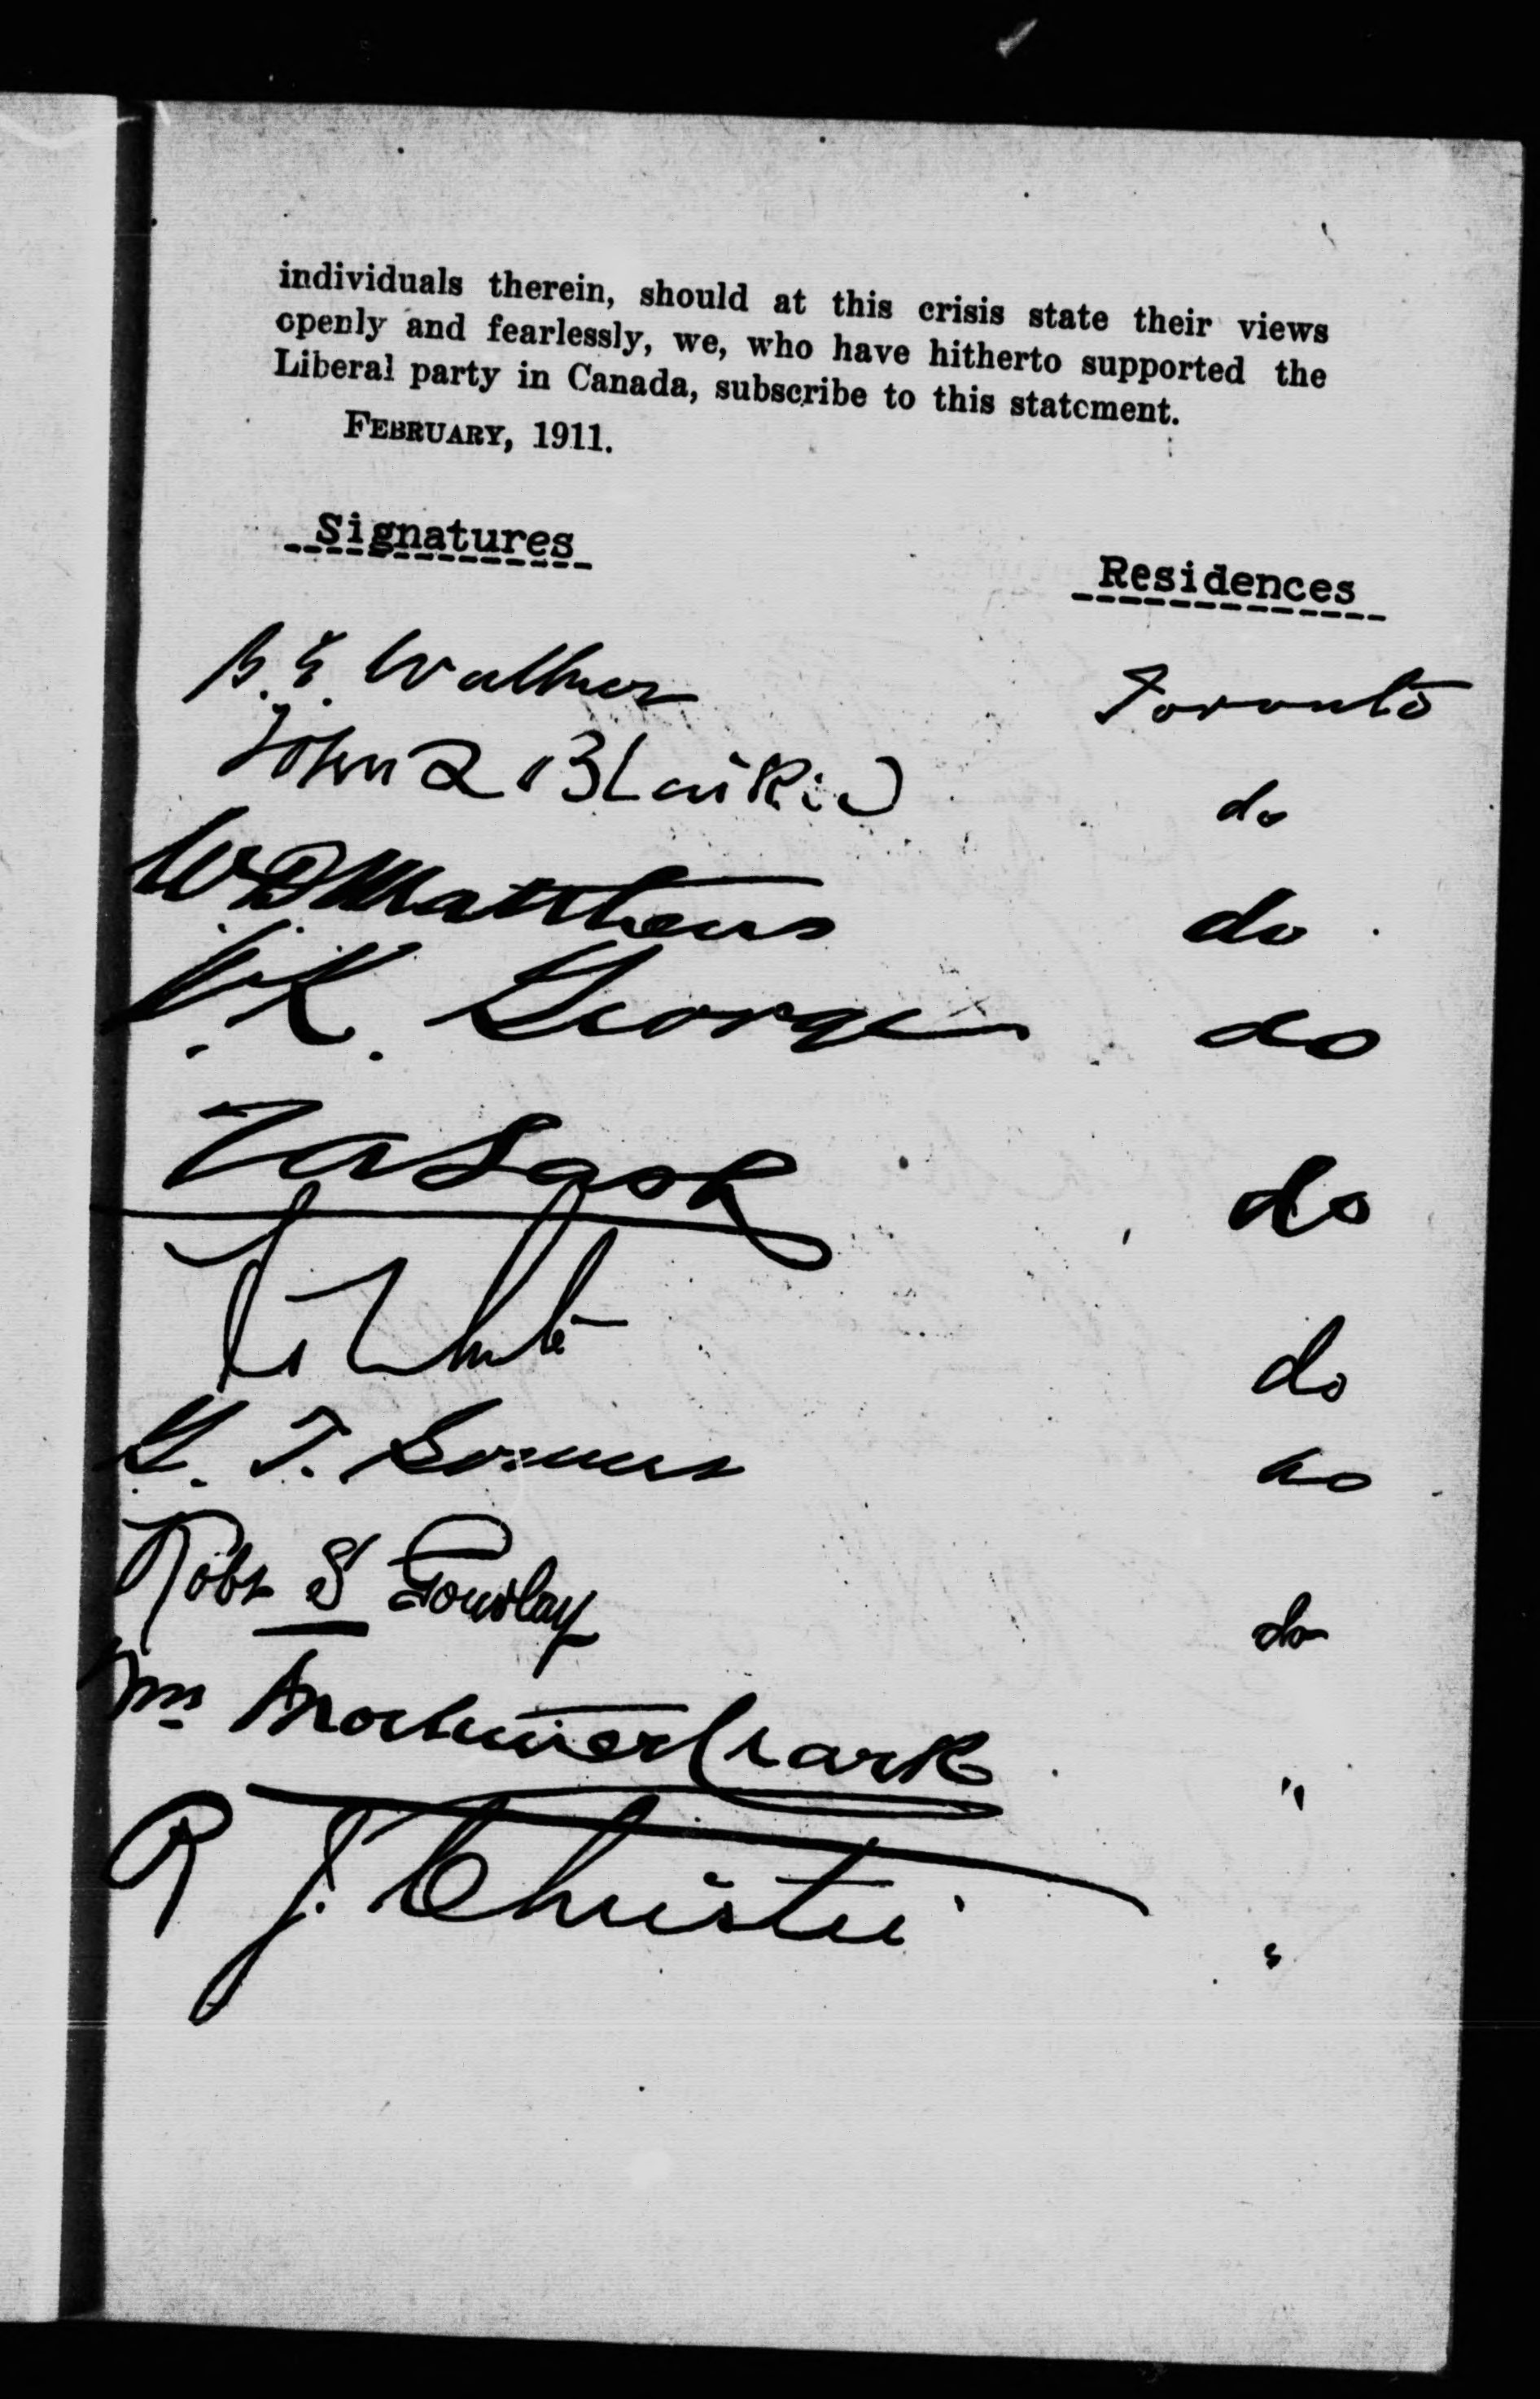 individuals therein, should at this crisis state their views
openly and fearlessly, we, who have hitherto supported the
Liberal party in Canada, subscribe to this statement.
FEBRUARY, 1911.
Signatures Residences
B. E. Walker Toronto
John L Blaikie do
WD Matthews do
W. K. George do
ZA Lash do
White do
G. T. Somers do
Robt S Gourlay do
Wm Mortimer Clark "
R J. Christie "